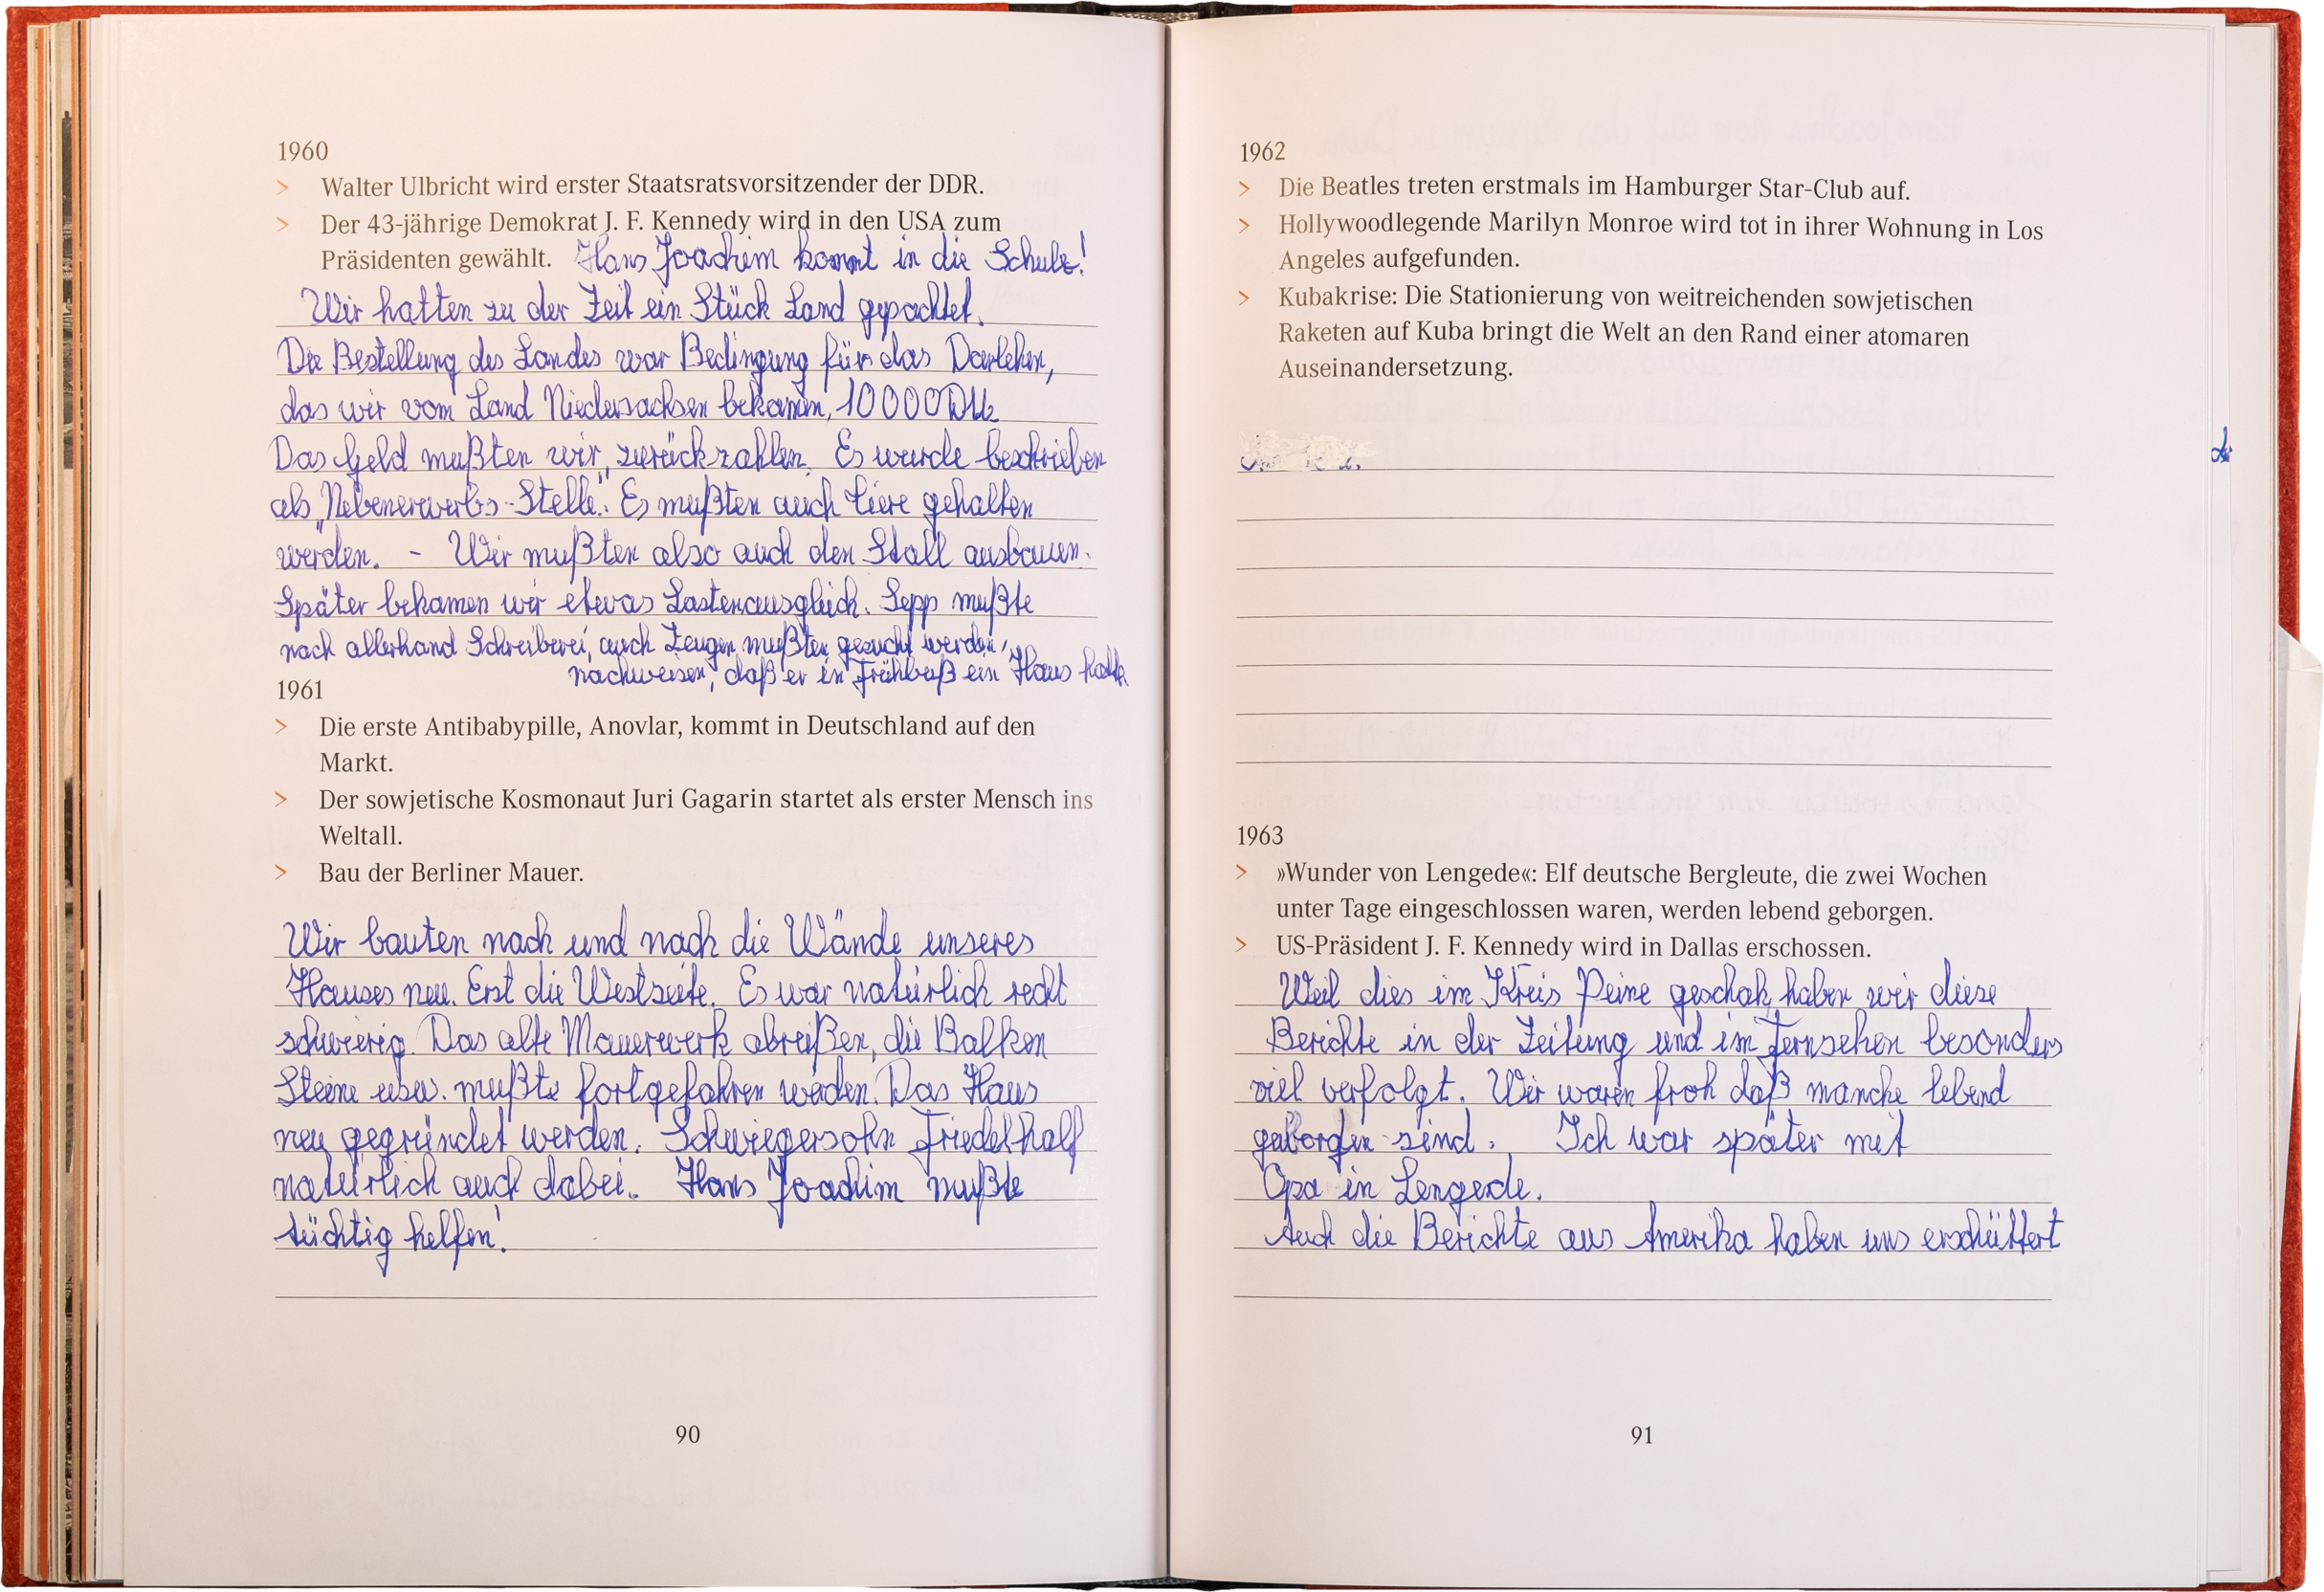 1960
> Walter Ulbricht wird erster Staatsratsvorsitzender der DDR.
> Der 43-jährige Demokrat J. F. Kennedy wird in den USA zum
Präsidenten gewählt. Hans Joachim kommt in die Schule!
Wir hatten zu der Zeit ein Stück Land gepachtet.
Die Bestellung des Landes war Bedingung für das Darlehen,
das wir vom Land Niedersachsen bekamen, 10000 DM
Das Geld mußten wir zurückzahlen. Es wurde beschrieben
als „Nebenerwerbs-Stelle". Es mußten auch Tiere gehalten
werden. - Wir mußten also auch den Stall ausbauen.
Später bekamen wir etwas Lastenausgleich. Sepp mußte
nach allerhand Schreiberei, auch Zeugen mußten gesucht werden,
nachweisen, daß er in Frühbuß ein Haus hatte
1961
> Die erste Antibabypille, Anovlar, kommt in Deutschland auf den
Markt.
> Der sowjetische Kosmonaut Juri Gagarin startet als erster Mensch ins
Weltall.
> Bau der Berliner Mauer.
Wir bauten nach und nach die Wände unseres
Hauses neu. Erst die Westseite. Es war natürlich recht
schwierig. Das alte Mauerwerk abreißen, die Balken
Steine usw. mußte fortgefahren werden. Das Haus
neu gegründet werden. Schwiegersohn Friedel half
natürlich auch dabei. Hans Joachim mußte
tüchtig helfen!
90
1962
> Die Beatles treten erstmals im Hamburger Star-Club auf.
> Hollywoodlegende Marilyn Monroe wird tot in ihrer Wohnung in Los
Angeles aufgefunden.
> Kubakrise: Die Stationierung von weitreichenden sowjetischen
Raketen auf Kuba bringt die Welt an den Rand einer atomaren
Auseinandersetzung.
1963
> »Wunder von Lengede«: Elf deutsche Bergleute, die zwei Wochen
unter Tage eingeschlossen waren, werden lebend geborgen.
> US-Präsident J. F. Kennedy wird in Dallas erschossen.
Weil dies im Kreis Peine geschah, haben wir diese
Berichte in der Zeitung und im Fernsehen besonders
viel verfolgt. Wir waren froh daß manche lebend
geborgen sind. Ich war später mit
Opa in Lengede.
Auch die Berichte aus Amerika haben uns erschüttert
91